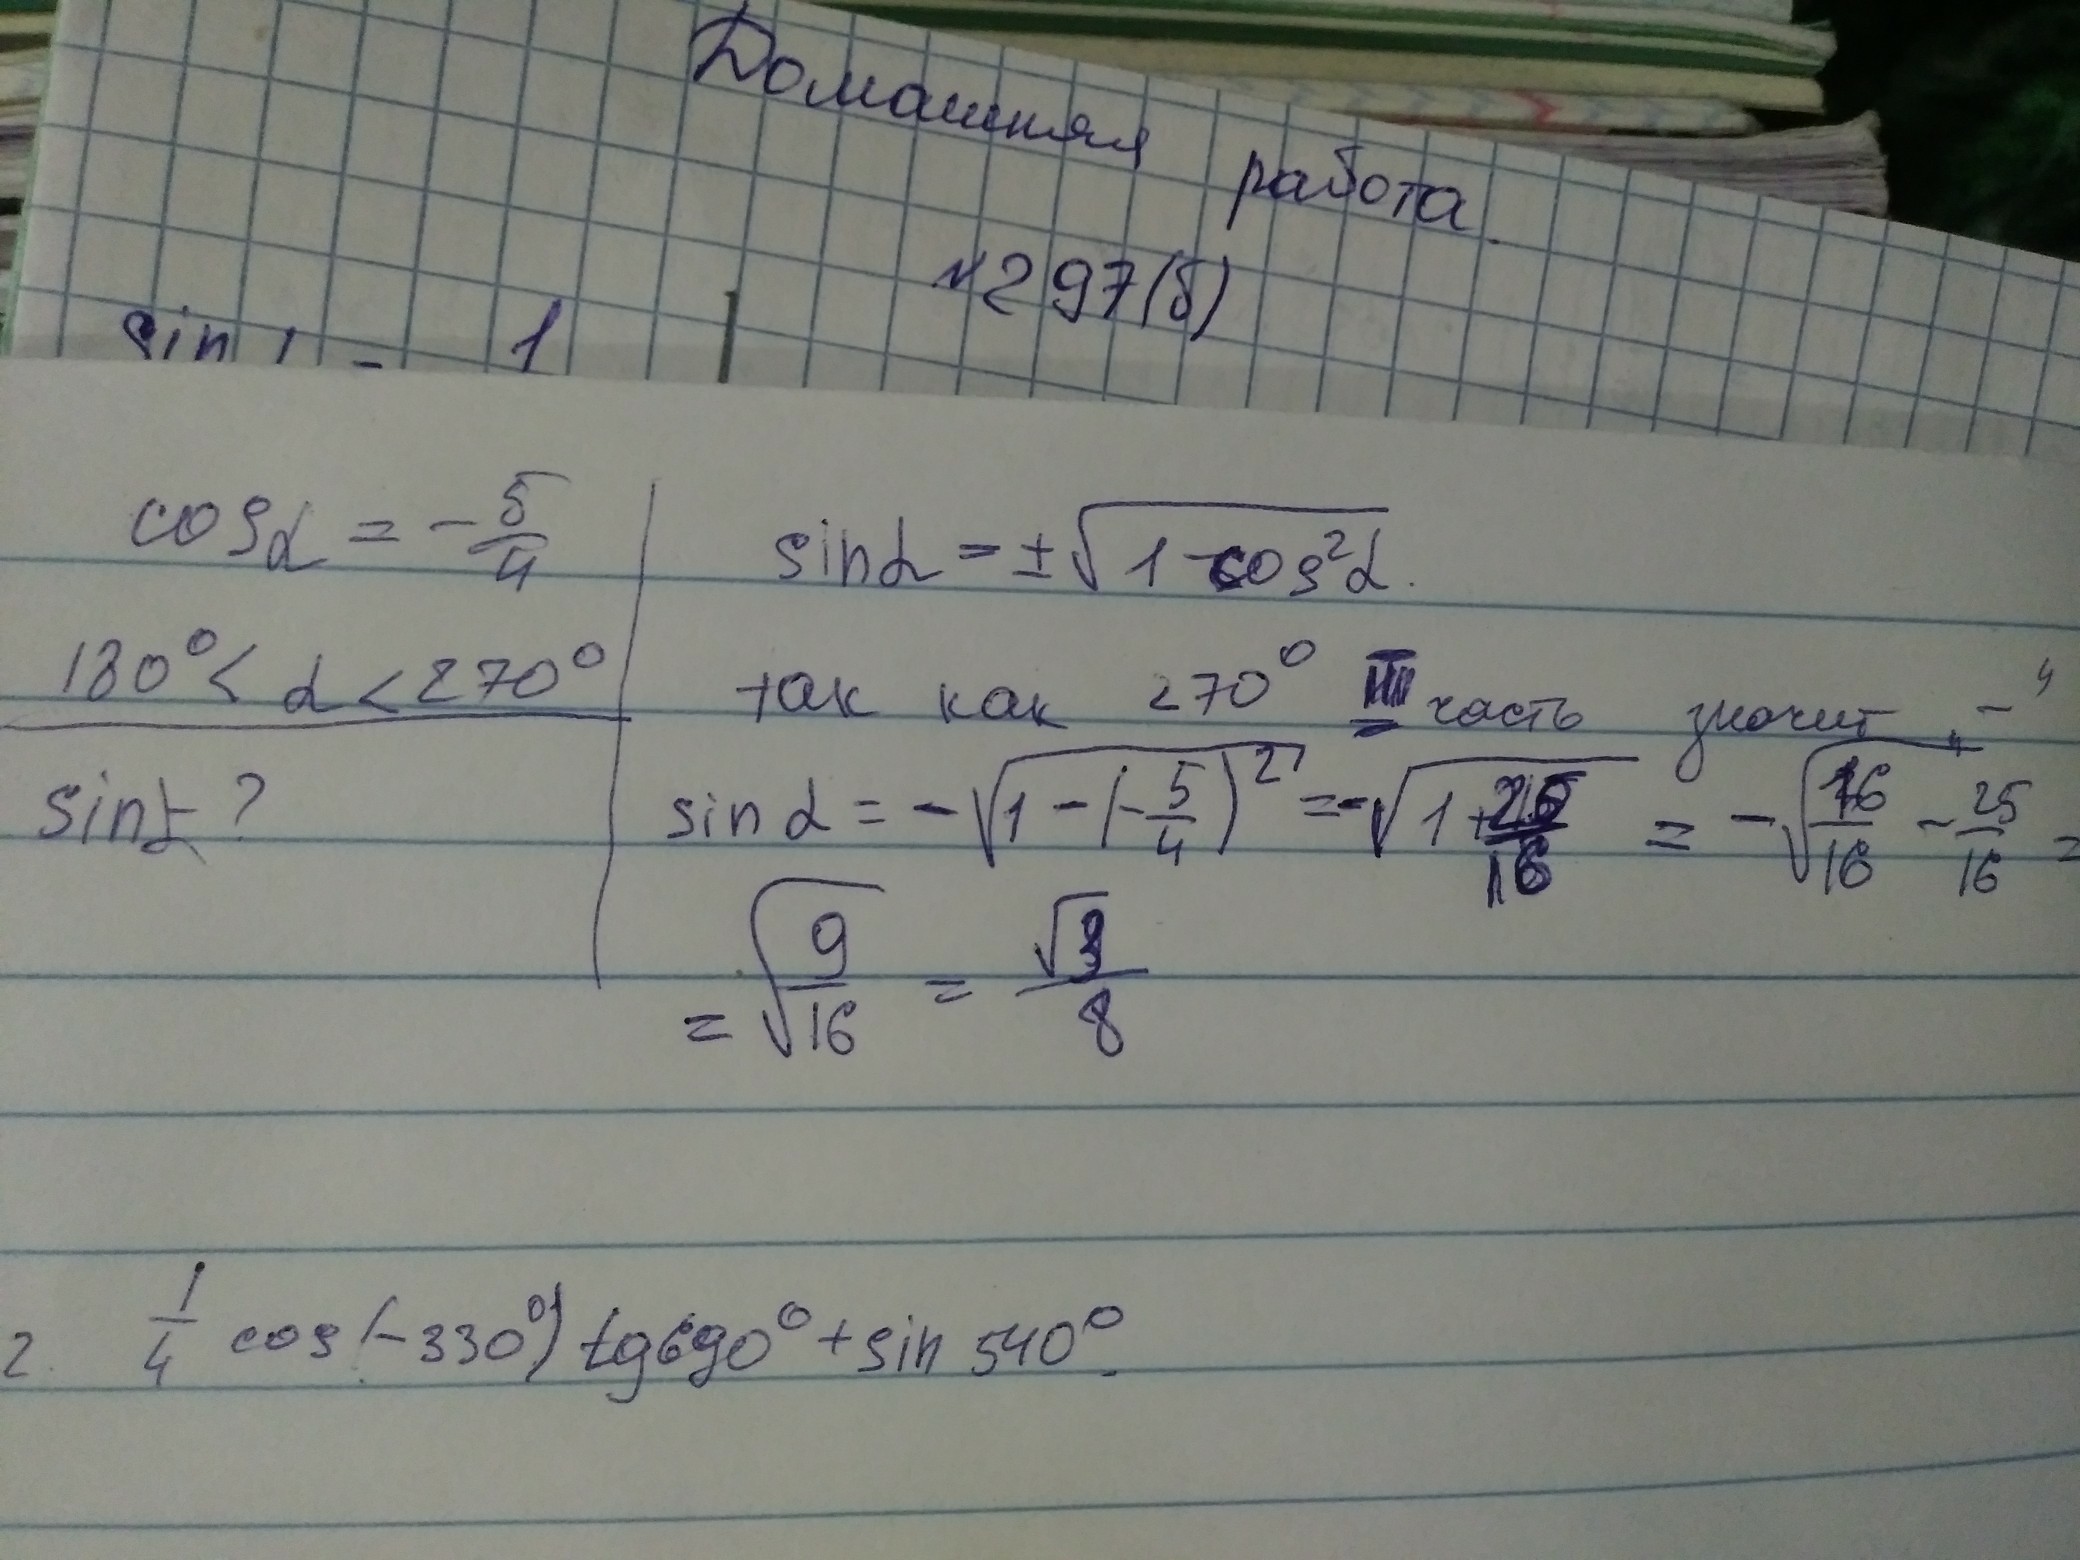 Домашняя работа.
№297(б)
sin - 1
cosα = -5/4
180° < α < 270°
sinα - ?
sinα = ±√(1 - cos²α).
так как 270° III часть значит „-“
sin α = -√(1 - (-5/4)²) = -√(1 + 25/16) = -√(16/16 - 25/16) =
= √(9/16) = √3/8
2. 1/4 cos(-330°) tg690° + sin 540°.